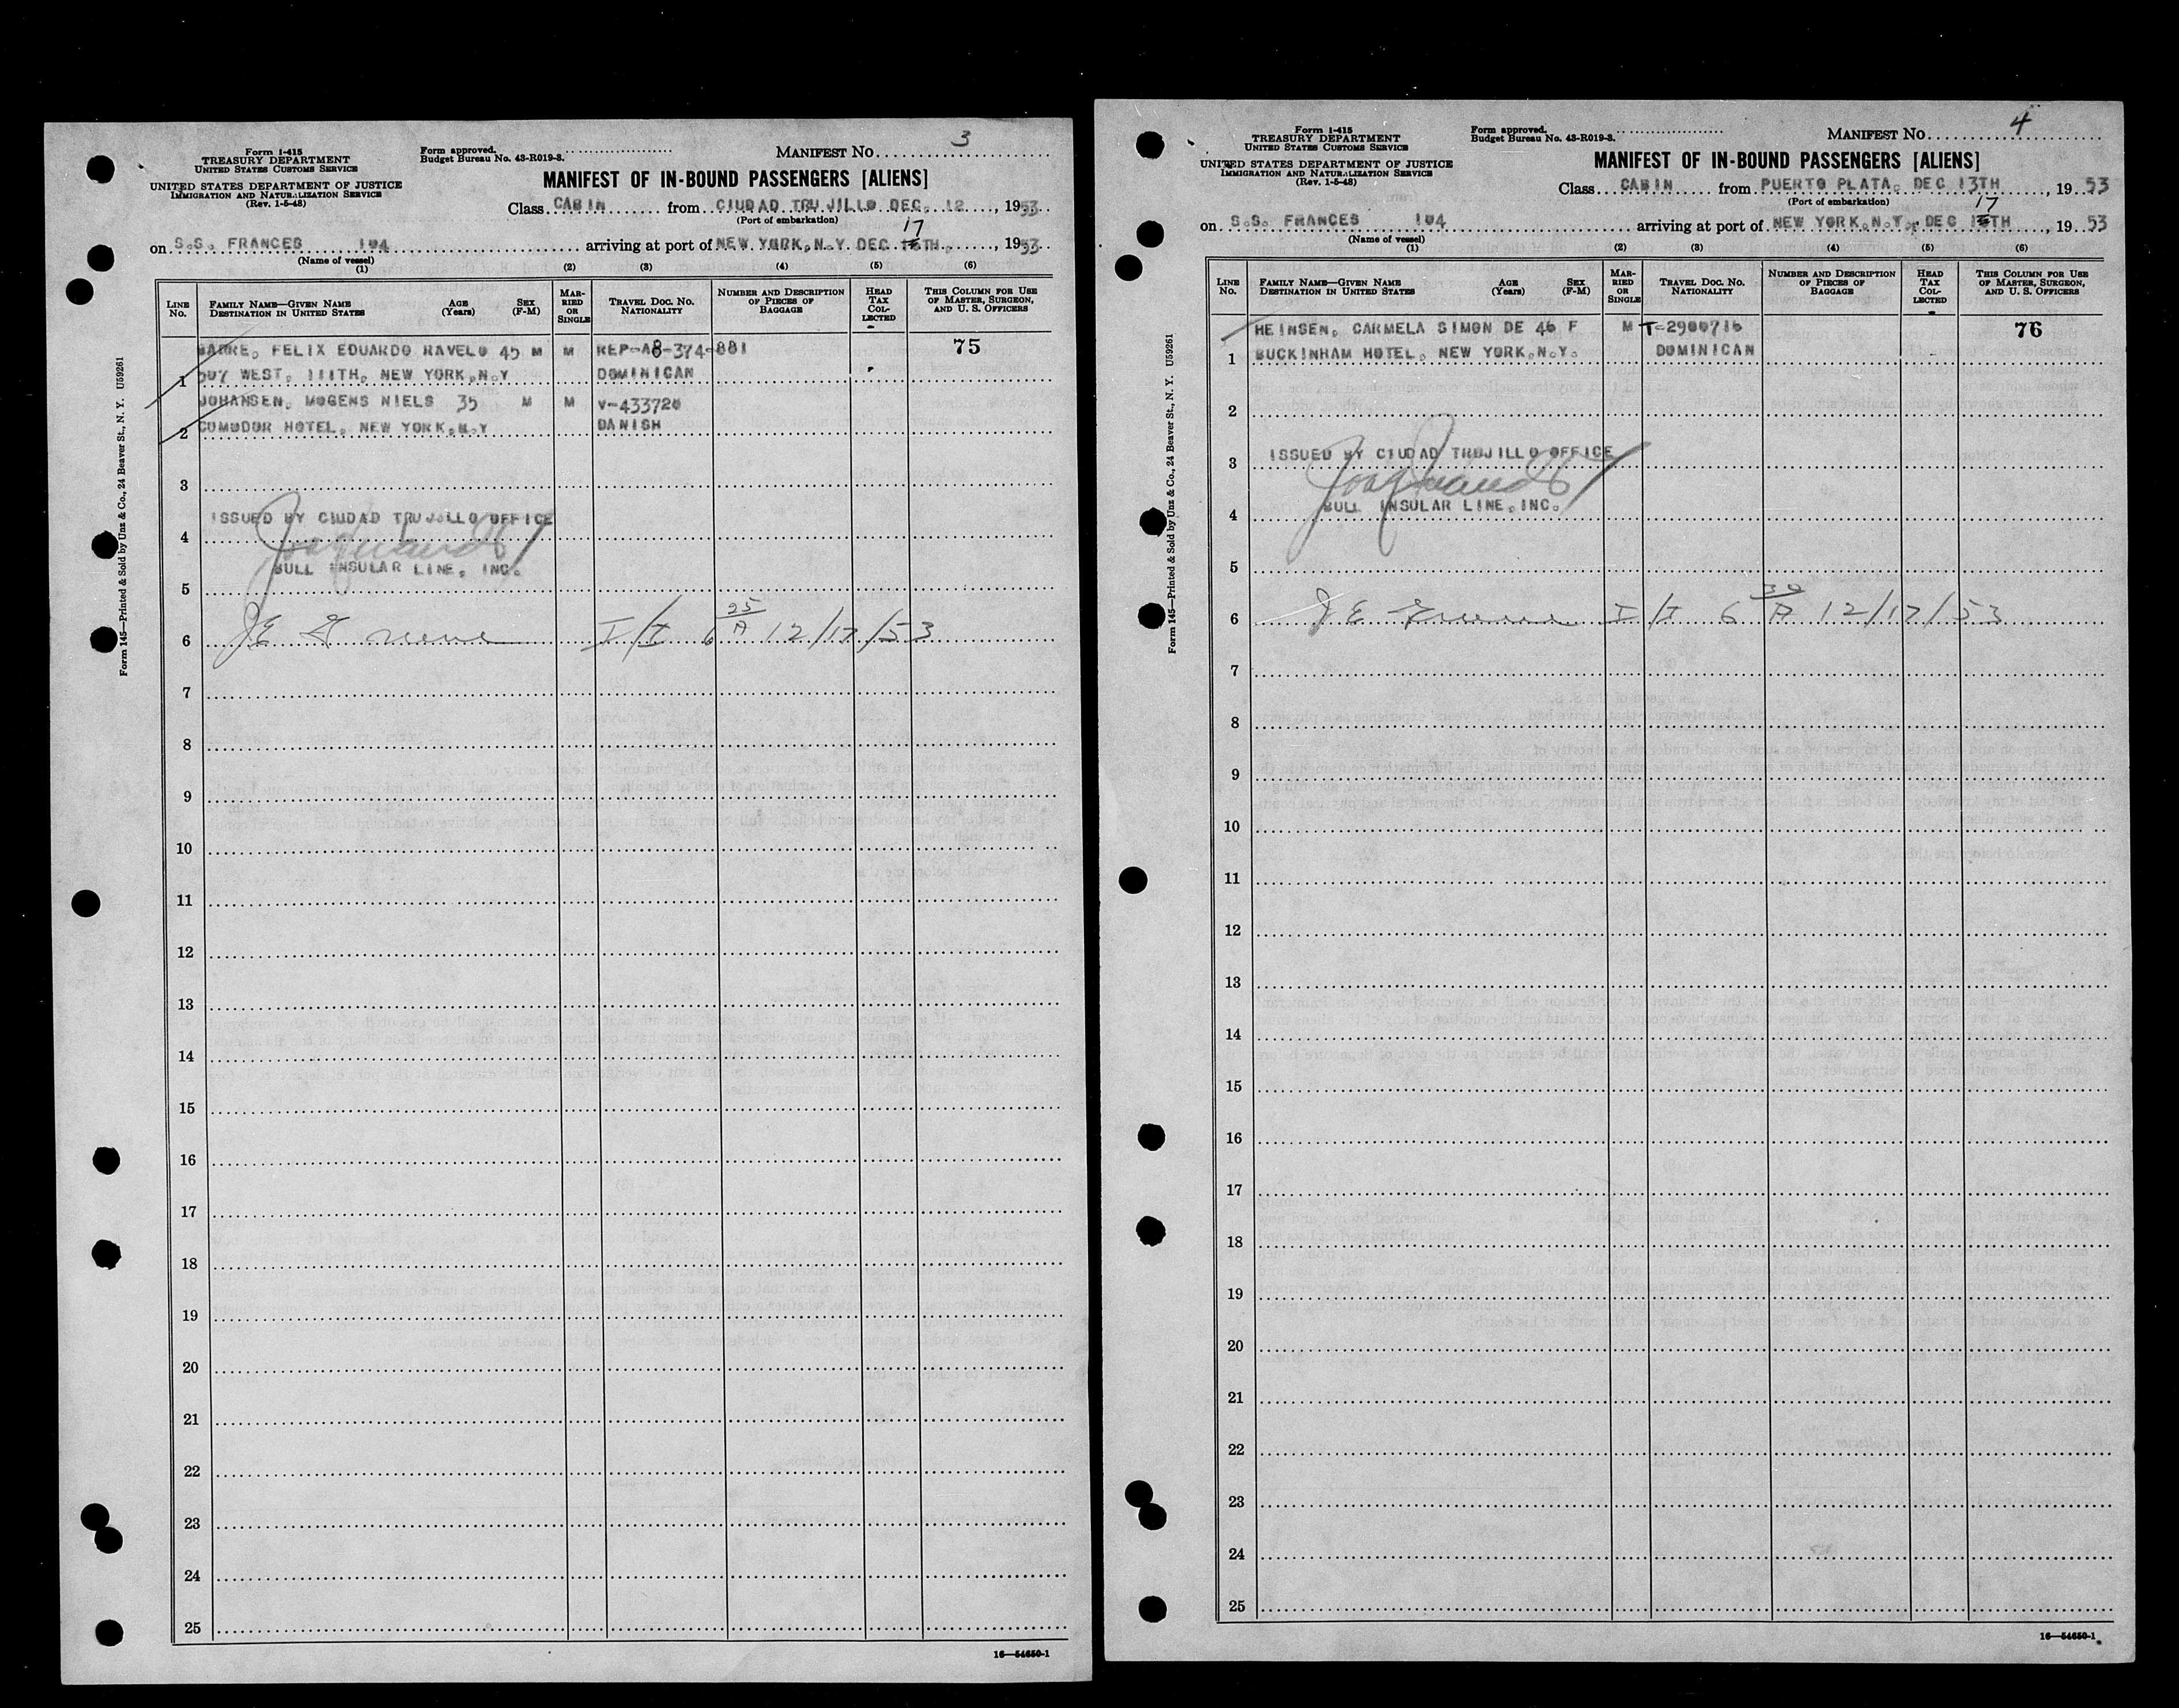 Form I-415
TREASURY DEPARTMENT
UNITED STATES CUSTOMS SERVICE
UNITED STATES DEPARTMENT OF JUSTICE
IMMIGRATION AND NATURALIZATION SERVICE
(Rev. 1-5-48)
Form approved.
Budget Bureau No. 43-R019-3.
MANIFEST No. 3
MANIFEST OF IN-BOUND PASSENGERS [ALIENS]
Class CABIN from CIUDAD TRUJILLO DEC. 12, 1953
(Port of embarkation)
17
on S.S. FRANCES 104 arriving at port of NEW YORK,N.Y. DEC. TH., 1953
(Name of vessel)
(1) (2) (3) (4) (5) (6)
LINE No. FAMILY NAME—GIVEN NAME DESTINATION IN UNITED STATES AGE (Years) SEX (F-M) MARRIED OR SINGLE TRAVEL DOC. NO. NATIONALITY NUMBER AND DESCRIPTION OF PIECES OF BAGGAGE HEAD TAX COLLECTED THIS COLUMN FOR USE OF MASTER, SURGEON, AND U. S. OFFICERS
FELIX EDUARDO RAVELO 45 M M REP-A8-374-881 75
1 507 WEST, 111TH, NEW YORK,N.Y DOMINICAN
JOHANSEN, MOGENS NIELS 35 M M V-433720
2 COMODOR HOTEL, NEW YORK,N.Y DANISH
3
ISSUED BY CIUDAD TRUJILLO OFFICE
4
BULL INSULAR LINE, INC.
5
25
6 JE Greene I/I 6 A 12/17/53
7
8
9
10
11
12
13
14
15
16
17
18
19
20
21
22
23
24
25
16—54650-1
Form 145—Printed & Sold by Unz & Co., 24 Beaver St., N. Y. U59261
Form I-415
TREASURY DEPARTMENT
UNITED STATES CUSTOMS SERVICE
UNITED STATES DEPARTMENT OF JUSTICE
IMMIGRATION AND NATURALIZATION SERVICE
(Rev. 1-5-48)
Form approved.
Budget Bureau No. 43-R019-3.
MANIFEST No. 4
MANIFEST OF IN-BOUND PASSENGERS [ALIENS]
Class CABIN from PUERTO PLATA, DEC 13TH, 1953
(Port of embarkation)
17
on S.S. FRANCES 104 arriving at port of NEW YORK,N.Y., DEC TH, 1953
(Name of vessel)
(1) (2) (3) (4) (5) (6)
LINE No. FAMILY NAME—GIVEN NAME DESTINATION IN UNITED STATES AGE (Years) SEX (F-M) MARRIED OR SINGLE TRAVEL DOC. NO. NATIONALITY NUMBER AND DESCRIPTION OF PIECES OF BAGGAGE HEAD TAX COLLECTED THIS COLUMN FOR USE OF MASTER, SURGEON, AND U. S. OFFICERS
HEINSEN, CARMELA SIMON DE 46 F M T-2900716 76
1 BUCKINHAM HOTEL, NEW YORK,N.Y. DOMINICAN
2
ISSUED BY CIUDAD TRUJILLO OFFICE
3
BULL INSULAR LINE,INC.
4
5
6 JE Greene I/I 6 A 12/17/53
7
8
9
10
11
12
13
14
15
16
17
18
19
20
21
22
23
24
25
16—54650-1
Form 145—Printed & Sold by Unz & Co., 24 Beaver St., N. Y. U59261